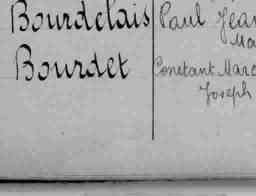 Bourdelais Paul Jean
Ma
Bourdet Constant Marc
Joseph